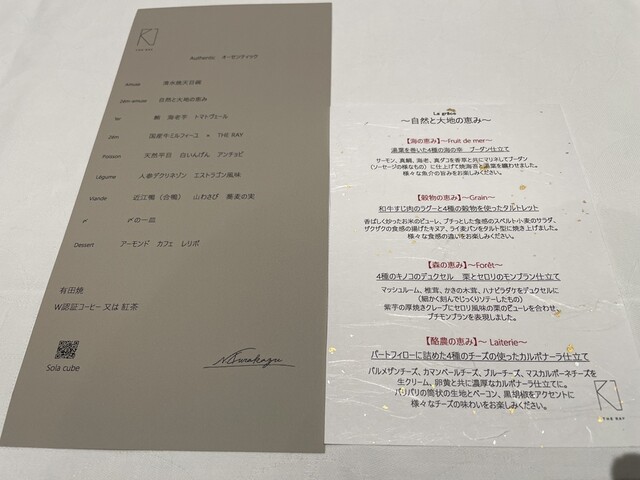 THE RAY
Authentic オーセンティック
Amuse 清水焼天目碗
2èm amuse 自然と大地の恵み
1er 鮪 海老芋 トマトヴェール
2èm 国産牛ミルフィーユ × THE RAY
Poisson 天然平目 白いんげん アンチョビ
Légume 人参デクリネゾン エストラゴン風味
Viande 近江鴨(合鴨) 山わさび 蕎麦の実
〆 〆の一皿
Dessert アーモンド カフェ レリボ
有田焼
W認証コーヒー 又は 紅茶
Sola cube
La grâce
~自然と大地の恵み~
【海の恵み】~Fruit de mer~
湯葉を巻いた4種の海の幸 ブーダン仕立て
サーモン、真鯛、海老、真ダコを香草と共にマリネしてブーダン
(ソーセージの様なもの)に仕上げて焼海苔と湯葉を纏わせました。
様々な魚介の旨みをお楽しみください。
【穀物の恵み】~Grain~
和牛すじ肉のラグーと4種の穀物を使ったタルトレット
香ばしく炒ったお米のピューレ、プチっとした食感のスペルト小麦のサラダ、
ザクザクの食感の揚げたキヌア、ライ麦パンをタルト型に焼き上げました。
様々な食感の違いをお楽しみください。
【森の恵み】~Forêt~
4種のキノコのデュクセル 栗とセロリのモンブラン仕立て
マッシュルーム、椎茸、かきの木茸、ハナビラダケをデュクセルに
(細かく刻んでじっくりソテーしたもの)
紫芋の厚焼きクレープにセロリ風味の栗のピューレを合わせ、
プチモンブランを表現しました。
【酪農の恵み】~ Laiterie~
パートフィローに詰めた4種のチーズの使ったカルボナーラ仕立て
パルメザンチーズ、カマンベールチーズ、ブルーチーズ、マスカルポーネチーズを
生クリーム、卵黄と共に濃厚なカルボナーラ仕立てに。
パリパリの筒状の生地とベーコン、黒胡椒をアクセントに
様々なチーズの味わいをお楽しみください。
THE RAY